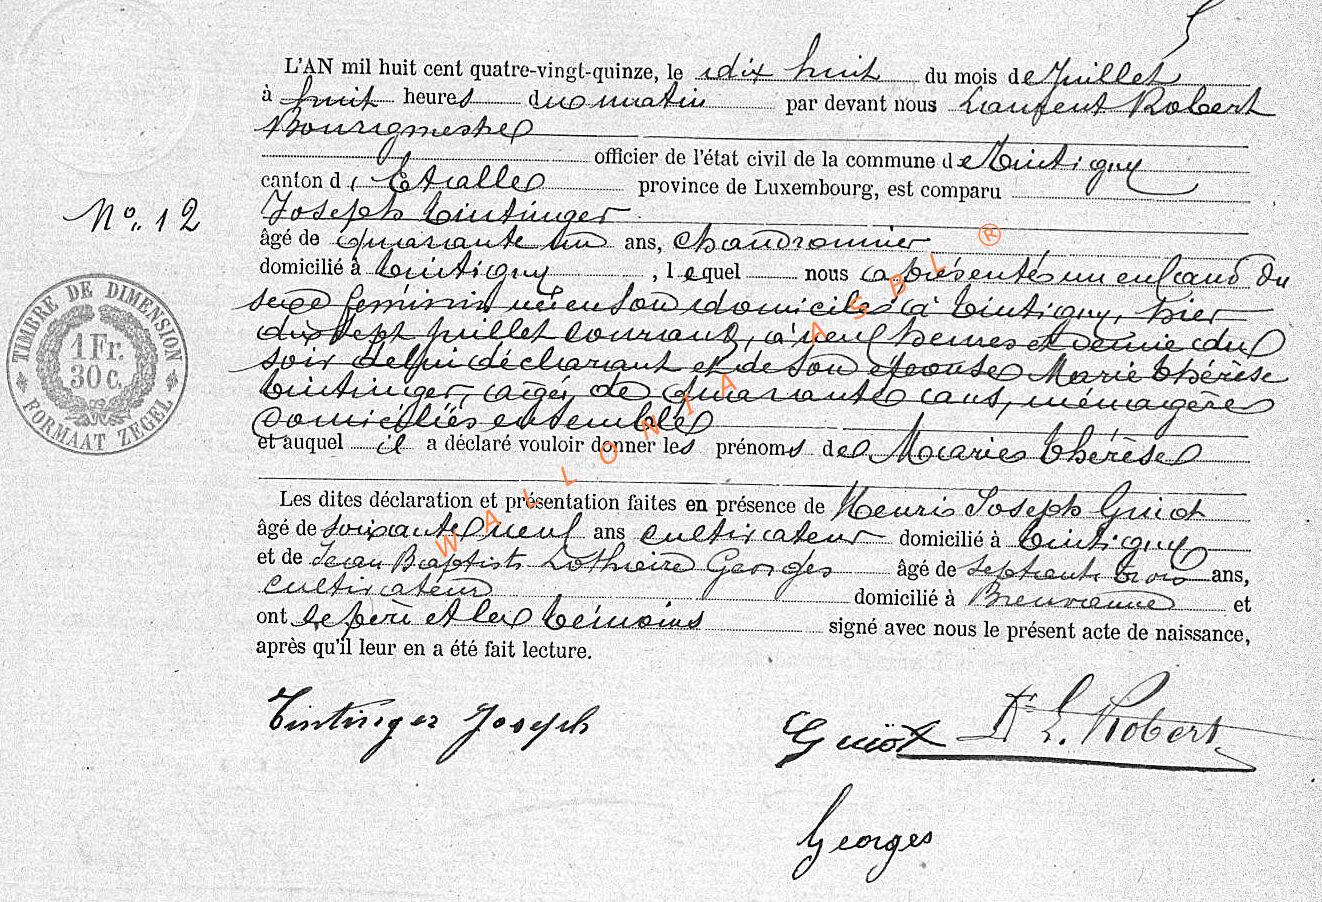 5
L'AN mil huit cent quatre-vingt-quinze, le dix huit du mois de Juillet
à huit heures du matin par devant nous Laurent Robert
Bourgmestre
officier de l'état civil de la commune de Tintigny
canton d'Etalle province de Luxembourg, est comparu
N° 12
Joseph Tintinger
âgé de quarante un ans, chaudronnier
domicilié à Tintigny, lequel nous a présenté un enfant du
sexe féminin, née en son domicile à Tintigny, hier
dix sept juillet courant, à neuf heures et demie du
soir de lui déclarant et de son épouse Marie Thérèse
Tintinger, âgée de quarante ans, ménagère
domiciliés ensemble
et auquel il a déclaré vouloir donner les prénoms de Marie Thérèse
Les dites déclaration et présentation faites en présence de Henri Joseph Guiot
âgé de soixante neuf ans cultivateur domicilié à Tintigny
et de Jean Baptiste Lothaire Georges âgé de septante trois ans,
cultivateur domicilié à Breuvanne et
ont le père et les témoins signé avec nous le présent acte de naissance,
après qu'il leur en a été fait lecture.
Tintinger Joseph
Guiot
Dr L. Robert
Georges
TIMBRE DE DIMENSION
1 Fr.
30 c.
FORMAAT ZEGEL
WALLONIA ASBL ®